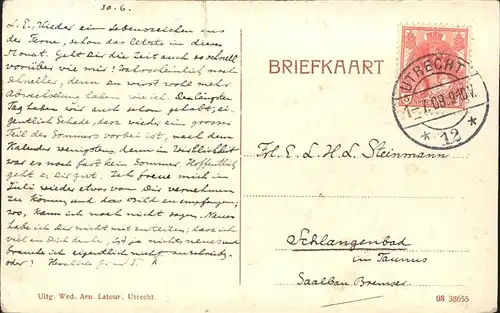 30.6.
L. E., Wieder ein Lebenszeichen aus
der Ferne, schon das letzte in diesem
Monat. Geht Dir die Zeit auch so schnell
vorüber wie mir? Wahrscheinlich noch
schneller, denn Du wirst wohl mehr
Abwechslung haben wie ich. Den längsten
Tag haben wir auch schon gehabt; ei-
gentlich Schade, dass wieder ein grosser
Teil des Sommers vorbei ist, nach dem
Kalender wenigstens, denn in Wirklichkeit
war es noch fast kein Sommer. Hoffentlich
geht es Dir gut. Ich freue mich im
Juli wieder etwas von Dir vernehmen
zu können und das Bild zu empfangen;
wo, kann ich noch nicht sagen. Neues
habe ich Dir nicht mitzuteilen; dass ich
viel an Dich denke, ist ja nichts neues und
brauche ich eigentlich nicht zu schreiben,
oder? Herzliche
BRIEFKAART
UTRECHT
12
Frl. E. L. H. L. Steinmann
Schlangenbad
im Taunus
Saalbau Bremser
Uitg. Wed. Arn. Latour, Utrecht.
08 38655